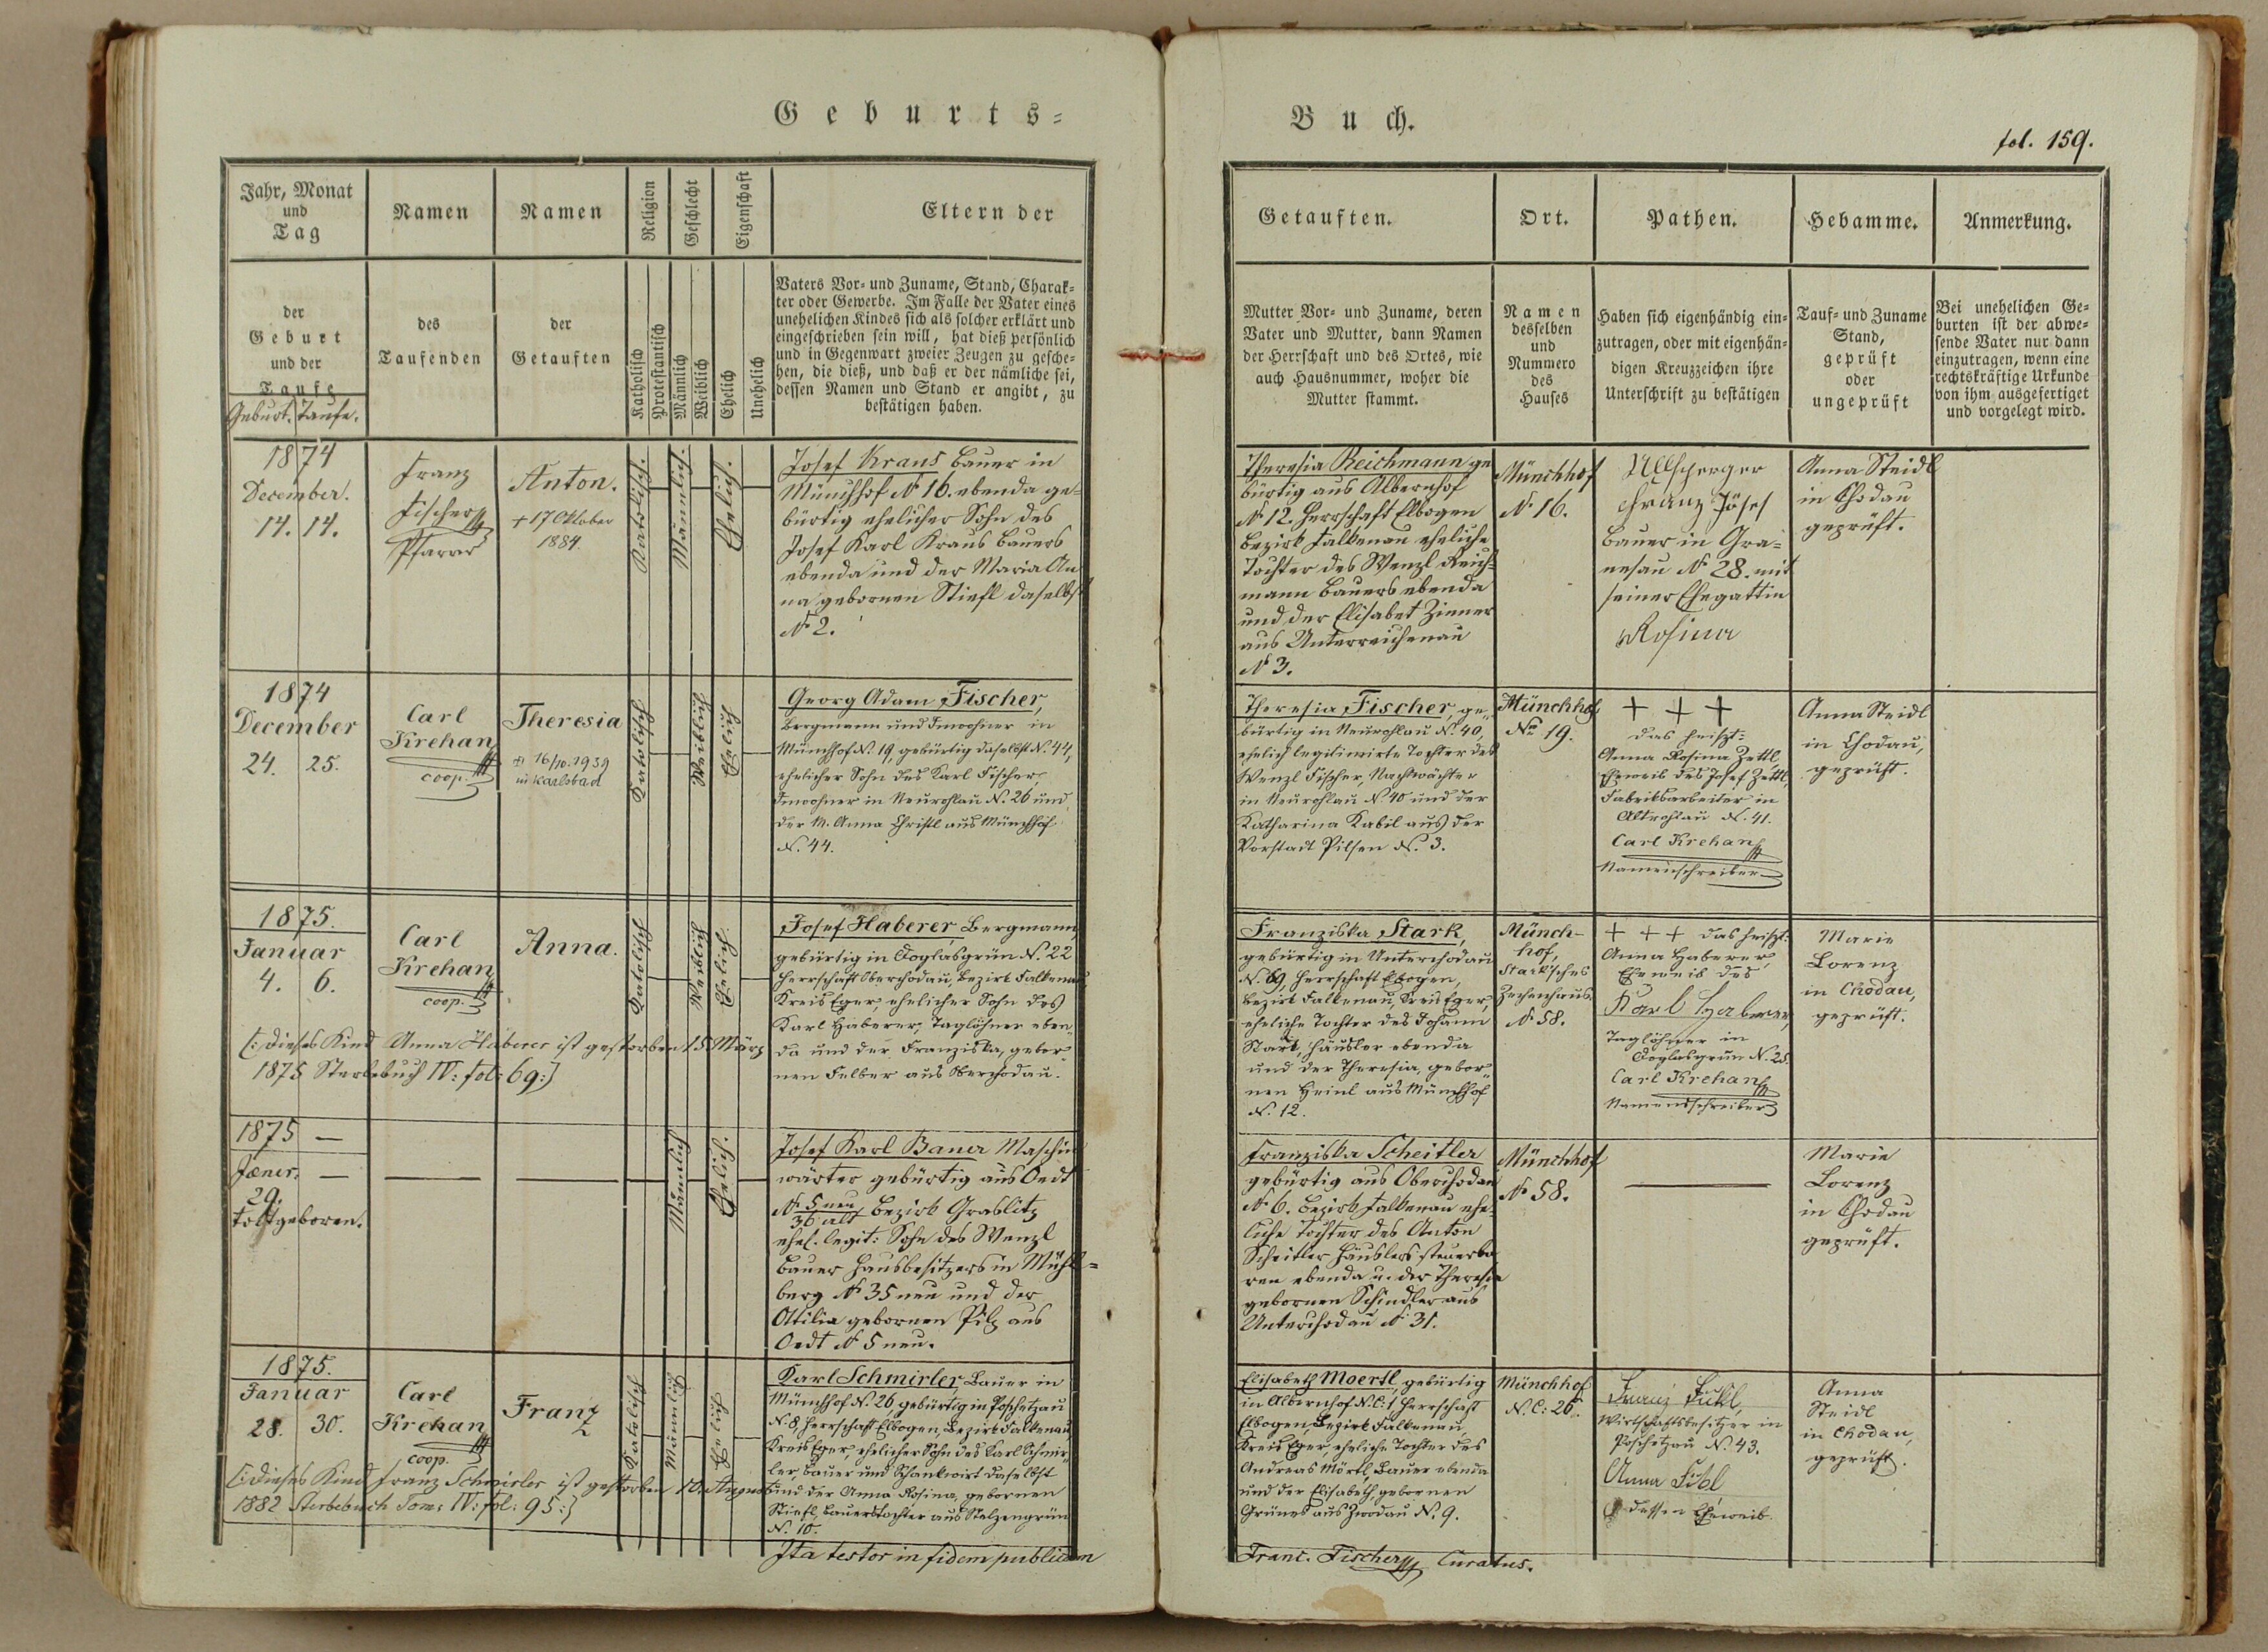 Geburts=
Buch.
fol. 159.
Jahr, Monat
und
Tag
Namen
Namen
Religion
Geschlecht
Eigenschaft
Eltern der
Getauften.
Ort.
Pathen.
Hebamme.
Anmerkung.
der
Geburt
und der
Taufe
Geburt. Taufe.
des
Taufenden
der
Getauften
Katholisch
Protestantisch
Männlich
Weiblich
Ehelich
Unehelich
Vaters Vor- und Zuname, Stand, Charak-
ter oder Gewerbe. Im Falle der Vater eines
unehelichen Kindes sich als solcher erklärt und
eingeschrieben sein will, hat dieß persönlich
und in Gegenwart zweier Zeugen zu gesche-
hen, die dieß, und daß er der nämliche sei,
dessen Namen und Stand er angibt, zu
bestätigen haben.
Mutter Vor- und Zuname, deren
Vater und Mutter, dann Namen
der Herrschaft und des Ortes, wie
auch Hausnummer, woher die
Mutter stammt.
Namen
desselben
und
Nummero
des
Hauses
Haben sich eigenhändig ein-
zutragen, oder mit eigenhän-
digen Kreuzzeichen ihre
Unterschrift zu bestätigen
Tauf- und Zuname
Stand,
geprüft
oder
ungeprüft
Bei unehelichen Ge-
burten ist der abwe-
sende Vater nur dann
einzutragen, wenn eine
rechtskräftige Urkunde
von ihm ausgefertiget
und vorgelegt wird.
1874
December.
14. 14.
Franz
Fischer
Pfarrer
Anton.
+ 17 Oktober
1884.
Katolisch.
Männlich.
Ehelich.
Josef Kraus Bauer in
Münchhof No 16. ebenda ge-
bürtig ehelicher Sohn des
Josef Karl Kraus Bauers
ebenda und der Maria An
na gebornen Stiefl daselbst
No 2.
Theresia Reichmann ge
bürtig aus Albernhof
No 12. Herrschaft Elbogen
Bezirk Falkenau eheliche
Tochter des Wenzl Reich-
mann Bauers ebenda
und der Elisabet Zinner
aus Unterreichenau
No 3.
Münchhof
No 16.
Ullsperger
Franz Josef
Bauer in Gra-
nesau No 28. mit
seiner Ehegattin
Rosina
Anna Steidl
in Chodau
geprüft.
1874
December
24. 25.
Carl
Krehan
coop.
Theresia
16/10. 1939
in Karlsbad
Katolisch
Weiblich
Ehelich
Georg Adam Fischer,
Bergmann und Inwohner in
Münchhof N. 19, gebürtig daselbst N. 44,
ehelicher Sohn des Karl Fischer
Inwohner in Neurohlau N. 26 und
der M. Anna Christl aus Münchhof
N. 44.
Theresia Fischer, ge-
bürtig in Neurohlau N. 40,
ehelich legitimirte Tochter des
Wenzl Fischer, Nachtwächter
in Neurohlau N. 40 und der
Katharina Kabil aus der
Vorstadt Pilsen N. 3.
Münchhof
No 19.
+ + +
das heißt:
Anna Rosina Zettl,
Eheweib des Josef Zettl,
Fabriksarbeiter in
Altrohlau N. 41.
Carl Krehan
Namenschreiber
Anna Steidl
in Chodau,
geprüft.
1875.
Januar
4. 6.
Carl
Krehan
coop.
Anna.
Katolisch
Weiblich
Ehelich.
(: Dieses Kind Anna Haberer ist gestorben 15 März
1875 Sterbebuch IV: fol: 69:)
Josef Haberer, Bergmann
gebürtig in Doglasgrün N. 22
Herrschaft Oberchodau, Bezirk Falkenau
Kreis Eger, ehelicher Sohn des
Karl Haberer, Taglöhner eben-
da und der Franziska, gebor-
nen Felber aus Oberchodau.
Franziska Stark,
gebürtig in Unterchodau
N. 69, Herrschaft Elbogen,
Bezirk Falkenau, Kreis Eger,
eheliche Tochter des Johann
Stark, Häusler ebenda
und der Theresia, gebor-
nen Heinl aus Münchhof
N. 12.
Münch-
hof,
Stark'sches
Zechenhaus
N. 58.
+ + + das heißt:
Anna Haberer,
Eheweib des
Karl Haberer,
Taglöhner in
Doglasgrün N. 25.
Carl Krehan
Namensschreiber
Marie
Lorenz
in Chodau,
geprüft.
1875 —
Jæner. —
29.
todtgeboren.
Männlich
Ehelich.
Josef Karl Bauer Maschin
wärter gebürtig aus Oedt
No 5 neu
36 alt Bezirk Graslitz
ehel. legit: Sohn des Wenzl
Bauer Hausbesitzers in Mühl=
berg No 35 neu und der
Ottilia gebornen Pilz aus
Oedt No 5 neu.
Franziska Scheitler
gebürtig aus Oberchodau
No 6. Bezirk Falkenau ehe-
liche Tochter des Anton
Scheitler Häuslers
ebenda u. der Theresia
gebornen Schindler aus
Unterchodau No 31.
Münchhof
No 58.
Marie
Lorenz
in Chodau
geprüft.
1875.
Januar
28. 30.
Carl
Krehan
coop.
Franz
Katolisch
Männlich
Ehelich
(: Dieses Kind Franz Schmirler ist gestorben 10. August
1882 Sterbebuch Tom: IV: fol: 95:)
Karl Schmirler, Bauer in
Münchhof N. 26, gebürtig in Poschetzau
N. 8, Herrschaft Elbogen, Bezirk Falkenau
Kreis Eger, ehelicher Sohn des Karl Schmir-
ler, Bauer und Schankwirt daselbst
und der Anna Rosina, gebornen
Stiefl, Bauerstochter aus Stelzengrün
N. 10.
Elisabeth Moertl, gebürtig
in Albernhof N. C: 1 Herrschaft
Elbogen, Bezirk Falkenau,
Kreis Eger, eheliche Tochter des
Andreas Mörtl, Bauer ebenda
und der Elisabeth, gebornen
Grünes aus Zwodau N. 9.
Münchhof
N. C: 26.
Franz
Wirtschaftsbesitzer in
Poschetzau N. 43.
Anna
dessen Eheweib.
Anna
Steidl
in Chodau,
geprüft.
Ita testor in fidem publicam
Franc. Fischer Curatus.